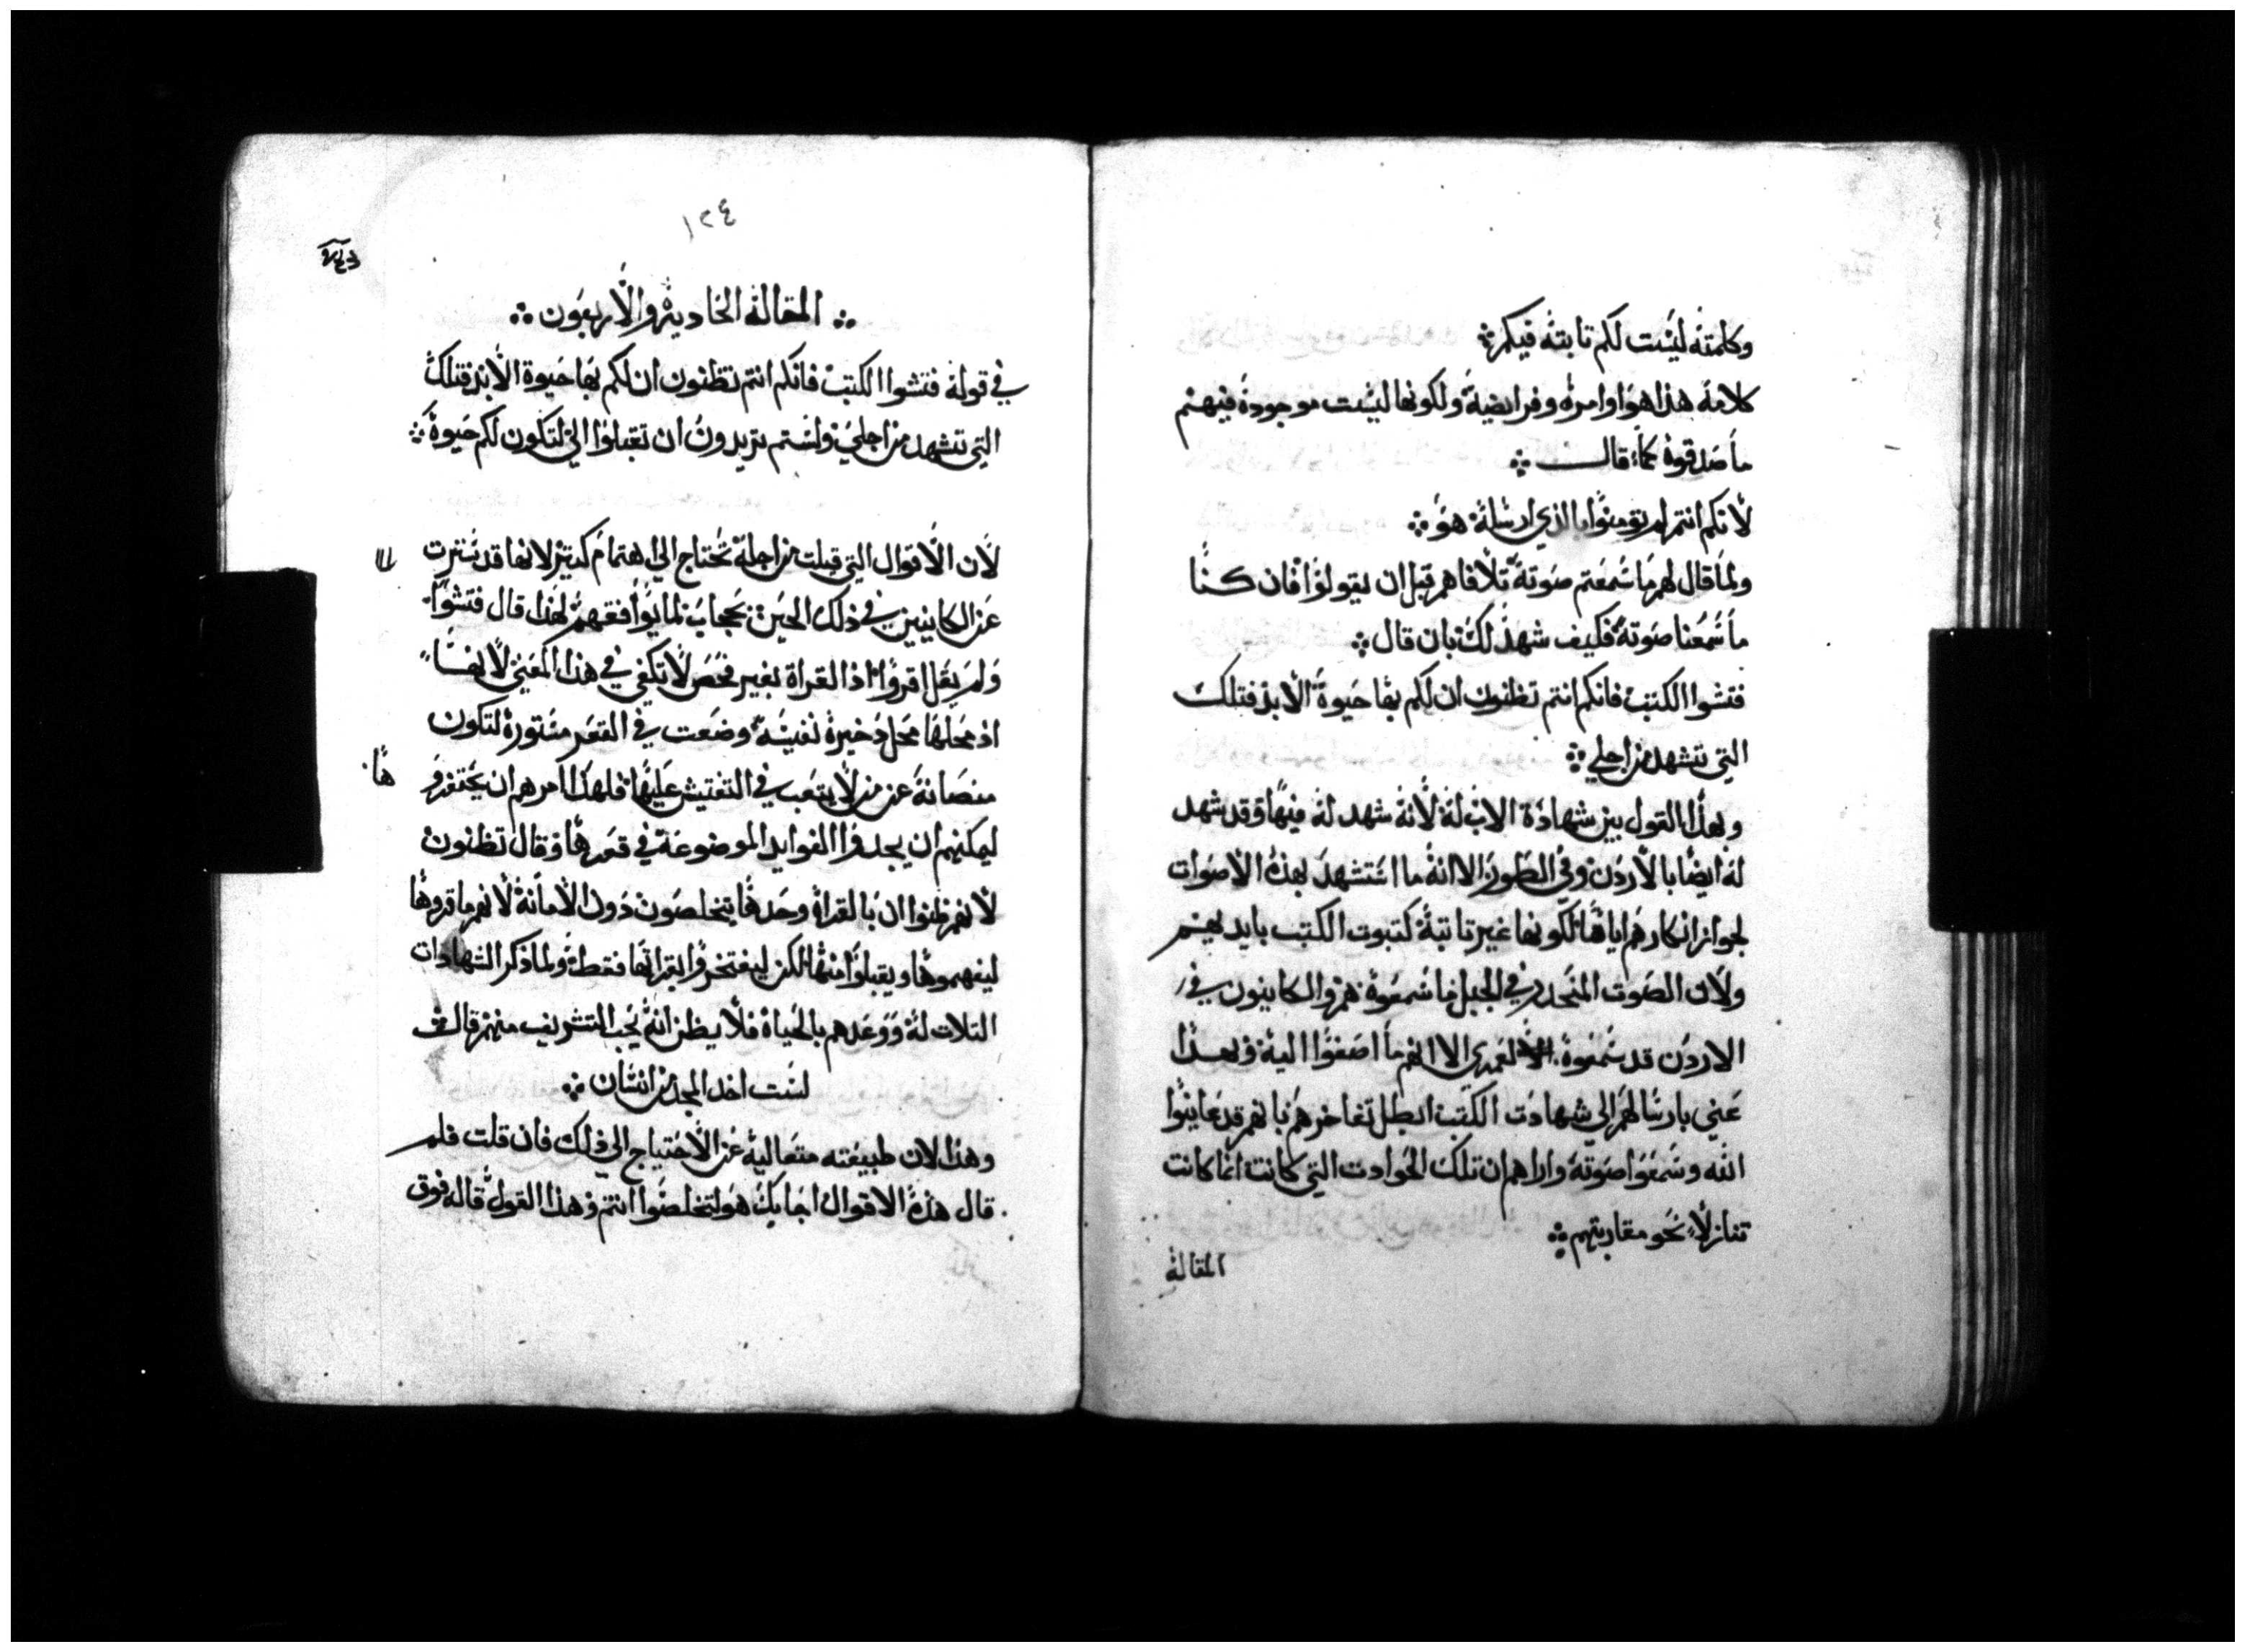 وكلمته ليست لكم تابته فيكم
كلامه هذا هو اوامره وفرايضه ولكونها ليست موجودة فيهم
ما صدقوه كما قال
لانكم انتم لم تومنوا بالذي ارسله هو
ولما قال لهم ما سمعتم صوته تلافاهم قبل ان يقولوا فان كنا
ما سمعنا صوته فكيف شهد لك بان قال
فتشوا الكتب فانكم انتم تظنون ان لكم بها حيوة الابد فتلك
التي تشهد من اجلي
وبهذا القول بين شهادة الاب له لانه شهد له فيها وقد شهد
له ايضا بالاردن وفي الطور الا انه ما استشهد بهذه الاصوات
لجواز انكارهم اياها لكونها غير تابتة كتبوت الكتب بايديهم
ولان الصوت المنحدر في الجبل ما سمعوه هم والكاينون في
الاردن قد سمعوه لعمري الا انهم ما اصغوا اليه وبهذا
عني بارسالهم الي شهادت الكتب ابطل تفاخرهم بانهم قد عاينوا
الله وسمعوا صوته واراهم ان تلك الحوادت التي كانت انما كانت
تنازلا نحو مقاربتهم
المقالة
١٢٤
المقالة الحادية والاربعون
في قوله فتشوا الكتب فانكم انتم تظنون ان لكم بها حيوة الابد فتلك
التي تشهد من اجلي ولستم تريدون ان تقبلوا الي لتكون لكم حيوة
لان الاقوال التي قيلت من اجله تحتاج الي اهتمام كتير لانها قد سترت
عن الكاينين في ذلك الحين بحجاب لما يوافقهم لهذا قال فتشوا
ولم يقل اقروا اذ القراة بغير فحص لا تكفي في هذا المعني لانها
اذ محلها محل ذخيرة نفيسة وضعت في القعر مستورة لتكون
منصانة عن من لا يتعب في التفتيش عليها فلهذا امرهم ان يحتفروها
ليمكنهم ان يجدوا الفوايد الموضوعة في قعرها وقال تظنون
لانهم ظنوا ان بالقراة وحدها يتخلصون دون الامانة لانهم ما قروها
ليفهموها ويقبلوا منها لكن ليفتخروا بقراتها فقط ولما ذكر الشهادات
التلات له ووعدهم بالحياة فلا يظن انه يحب التشريف منهم قال
لست اخد المجد من انسان
وهذا لان طبيعته متعالية عن الاحتياج الي ذلك فان قلت فلم
قال هذه الاقوال اجابك هو لتخلصوا انتم وهذا القول قاله فوق